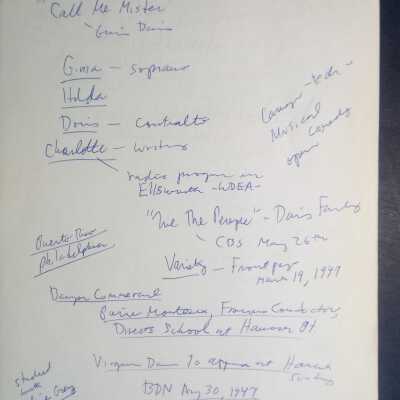 "Call Me Mister
Davis
Gina - soprano
Hilda
Doris - contralto
Charlotte - writing
radio program in
Ellsworth - WDEA -
Musical
Comedy
opera
"We The People" - Davis Family
CBS May 26th
Puerto Rico
Philadelphia
Variety - Front page
March 19, 1947
Bangor Commercial
Pierre Monteux, Famous Conductor,
Directs School at Hancock
Virginia Davis To appear at Hancock
Sunday
BDN Aug 30, 1947
studied
with